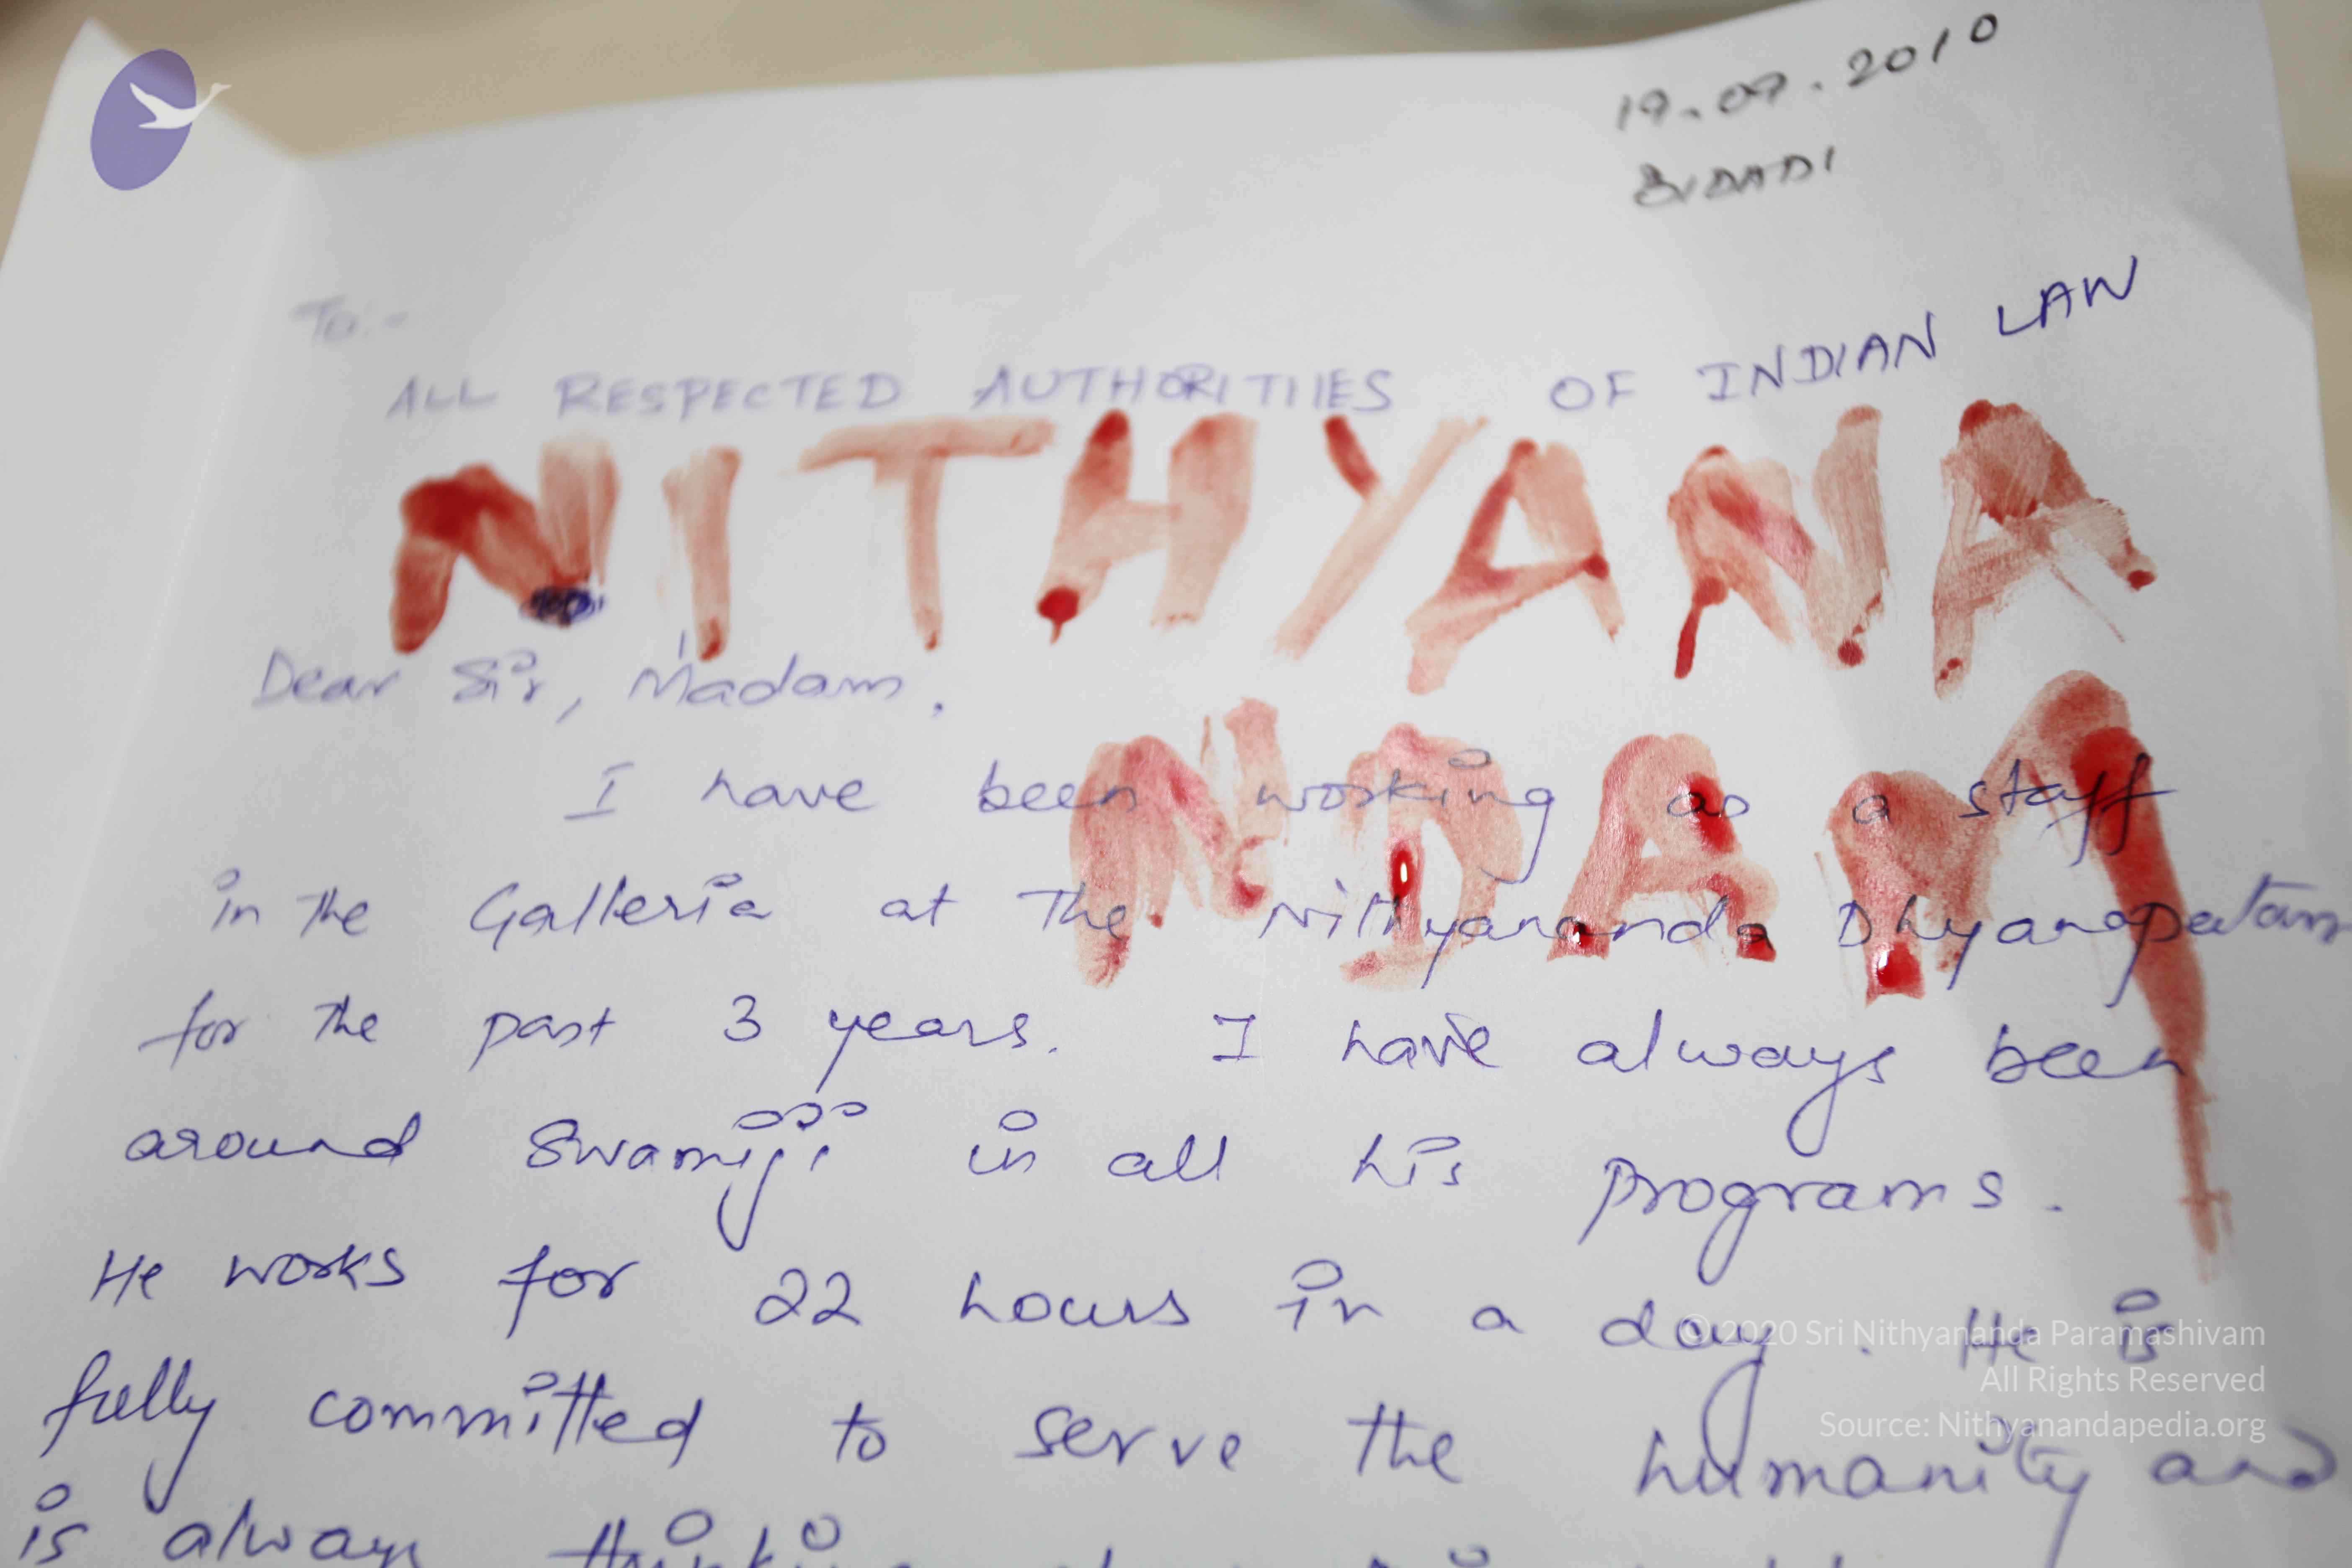 19.07.2010
BIDADI
To:-
ALL RESPECTED AUTHORITIIES OF INDIAN LAW
NITHYANA
Dear Sir, Madam,
NDAM
I have been working as a staff
in the Galleria at The Nithyananda Dhyanapeetam
for the past 3 years. I have always been
around Swamiji in all his programs.
He works for 22 hours in a day. He is
fully committed to serve the humanity and
is always thinking
©2020 Sri Nithyananda Paramashivam
All Rights Reserved
Source: Nithyanandapedia.org